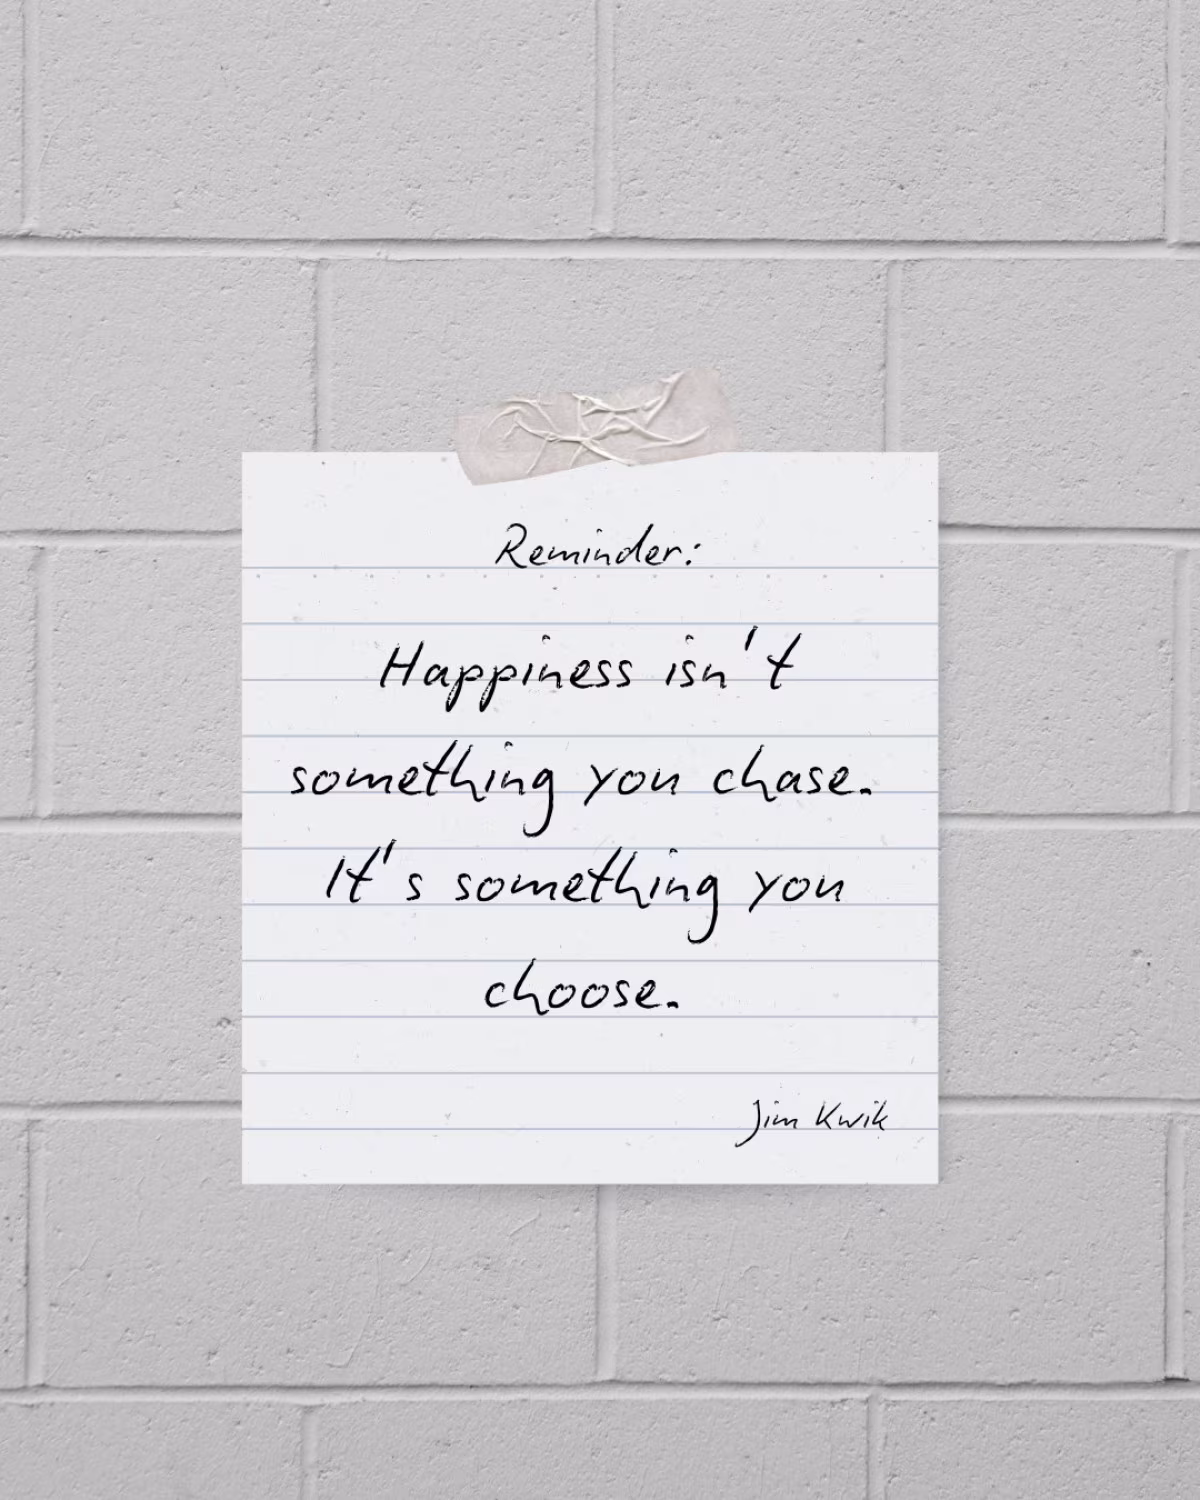 Reminder:
Happiness isn't
something you chase.
It's something you
choose.
Jim Kwik